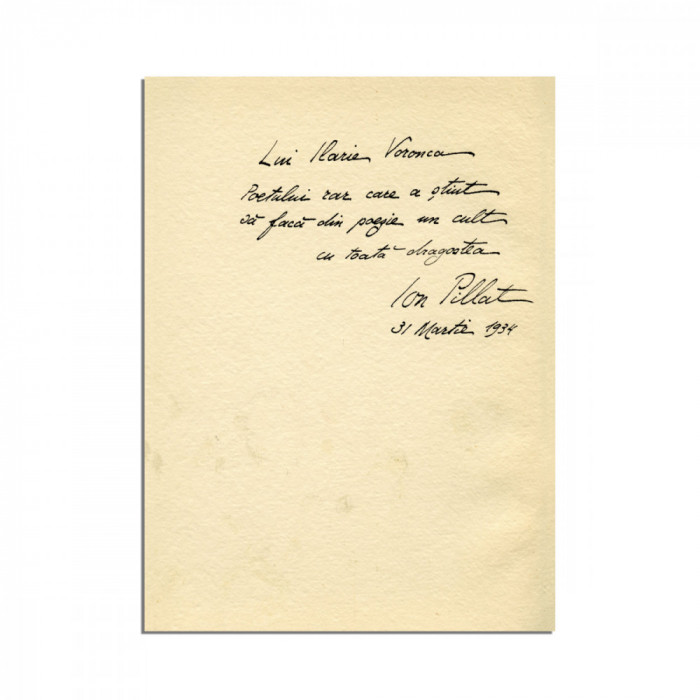 Lui Ilarie Voronca
Poetului rar care a știut
să facă din poezie un cult
cu toată dragostea
Ion Pillat
31 Martie 1934